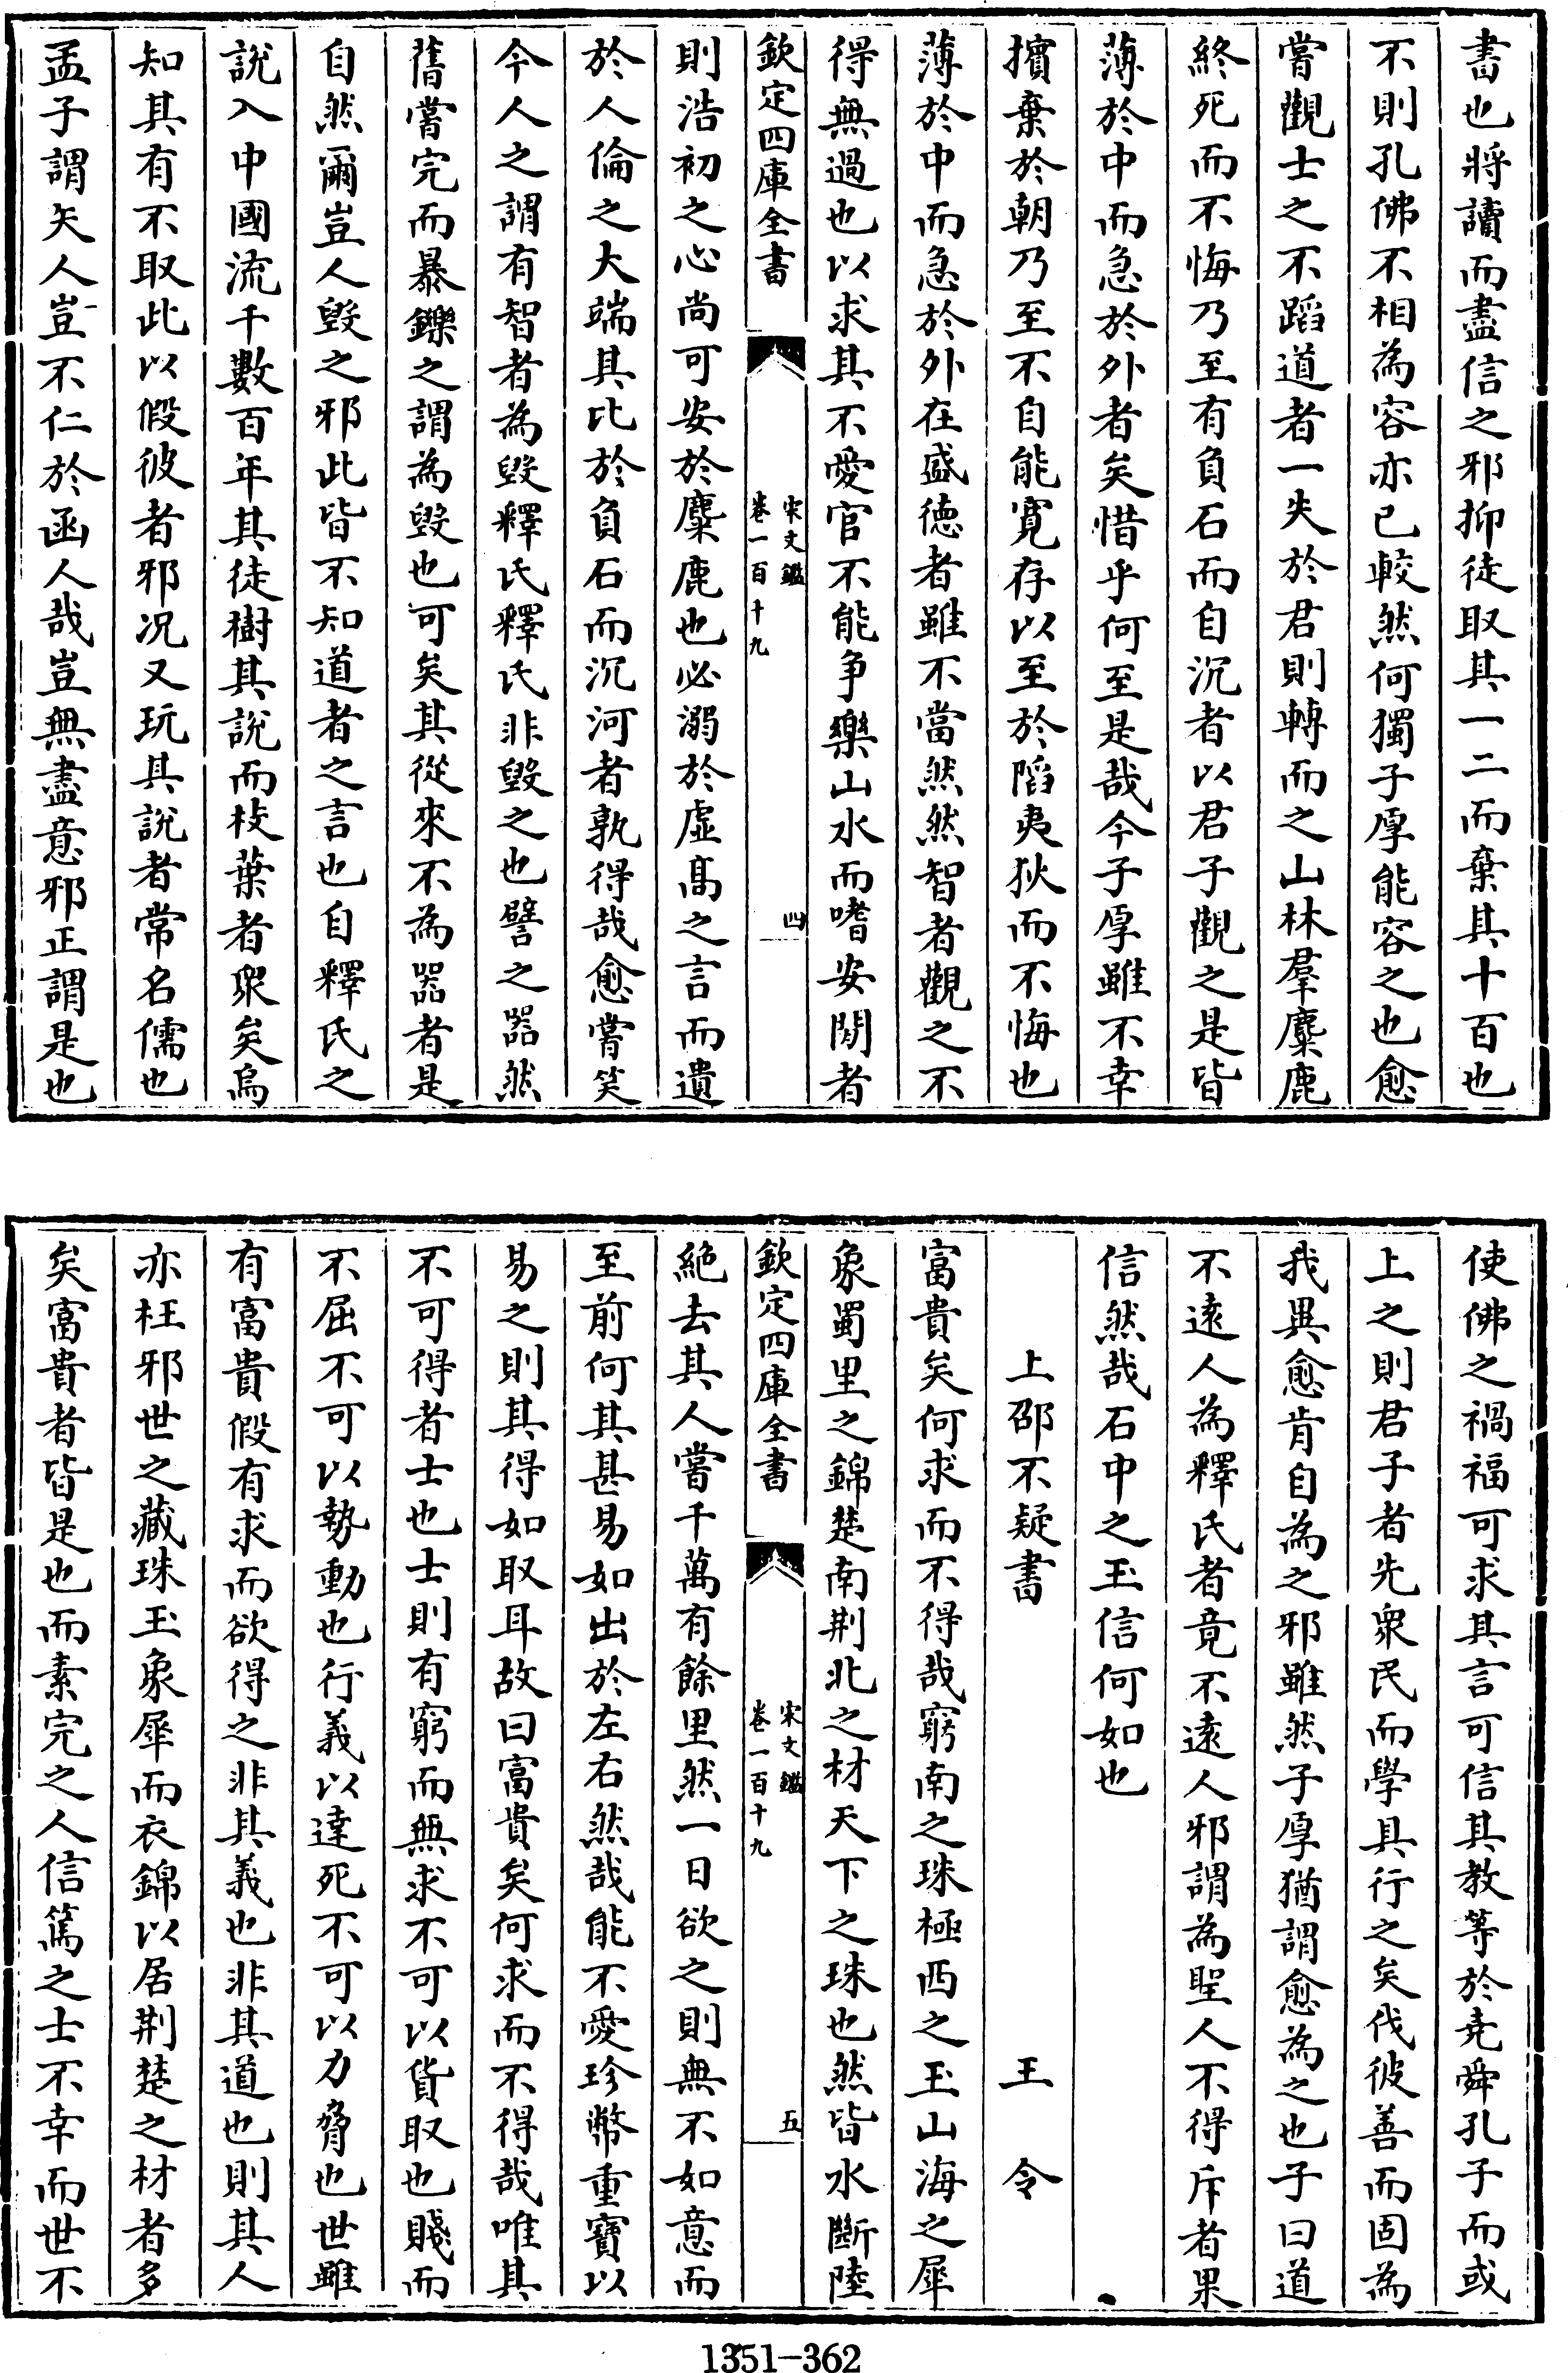 書也將讀而盡信之邪抑徒取其一二而棄其十百也
不則孔佛不相為容亦已較然何獨子厚能容之也愈
嘗觀士之不蹈道者一失於君則轉而之山林羣麋鹿
終死而不悔乃至有負石而自沉者以君子觀之是皆
薄於中而急於外者矣惜乎何至是哉今子厚雖不幸
擯棄於朝乃至不自能寬存以至於陷夷狄而不悔也
薄於中而急於外在盛德者雖不當然然智者觀之不
得無過也以求其不愛官不能争樂山水而嗜安閒者
欽定四庫全書
宋文鑑
卷一百十九
四
則浩初之心尚可安於麋鹿也必溺於虛髙之言而遺
於人倫之大端其比於負石而沉河者孰得哉愈嘗笑
今人之謂有智者為毀釋氏釋氏非毀之也譬之器然
舊嘗完而暴鑠之謂為毀也可矣其從來不為器者是
自然爾豈人毀之邪此皆不知道者之言也自釋氏之
說入中國流千數百年其徒樹其說而枝葉者衆矣烏
知其有不取此以假彼者邪况又玩其說者常名儒也
孟子謂矢人豈不仁於函人哉豈無盡意邪正謂是也
使佛之禍福可求其言可信其教等於堯舜孔子而或
上之則君子者先衆民而學具行之矣伐彼善而固為
我異愈肯自為之邪雖然子厚猶謂愈為之也子曰道
不逺人為釋氏者竟不逺人邪謂為聖人不得斥者果
信然哉石中之玉信何如也
上邵不疑書
王令
富貴矣何求而不得哉窮南之珠極西之玉山海之犀
象蜀里之錦楚南荆北之材天下之珠也然皆水斷陸
欽定四庫全書
宋文鑑
卷一百十九
五
絶去其人嘗千萬有餘里然一日欲之則無不如意而
至前何其甚易如出於左右然哉能不愛珍幣重寶以
易之則其得如取耳故曰富貴矣何求而不得哉唯其
不可得者士也士則有窮而無求不可以貨取也賤而
不屈不可以勢動也行義以達死不可以力脅也世雖
有富貴假有求而欲得之非其義也非其道也則其人
亦枉邪世之藏珠玉象犀而衣錦以居荆楚之材者多
矣富貴者皆是也而素完之人信篤之士不幸而世不
1351-362